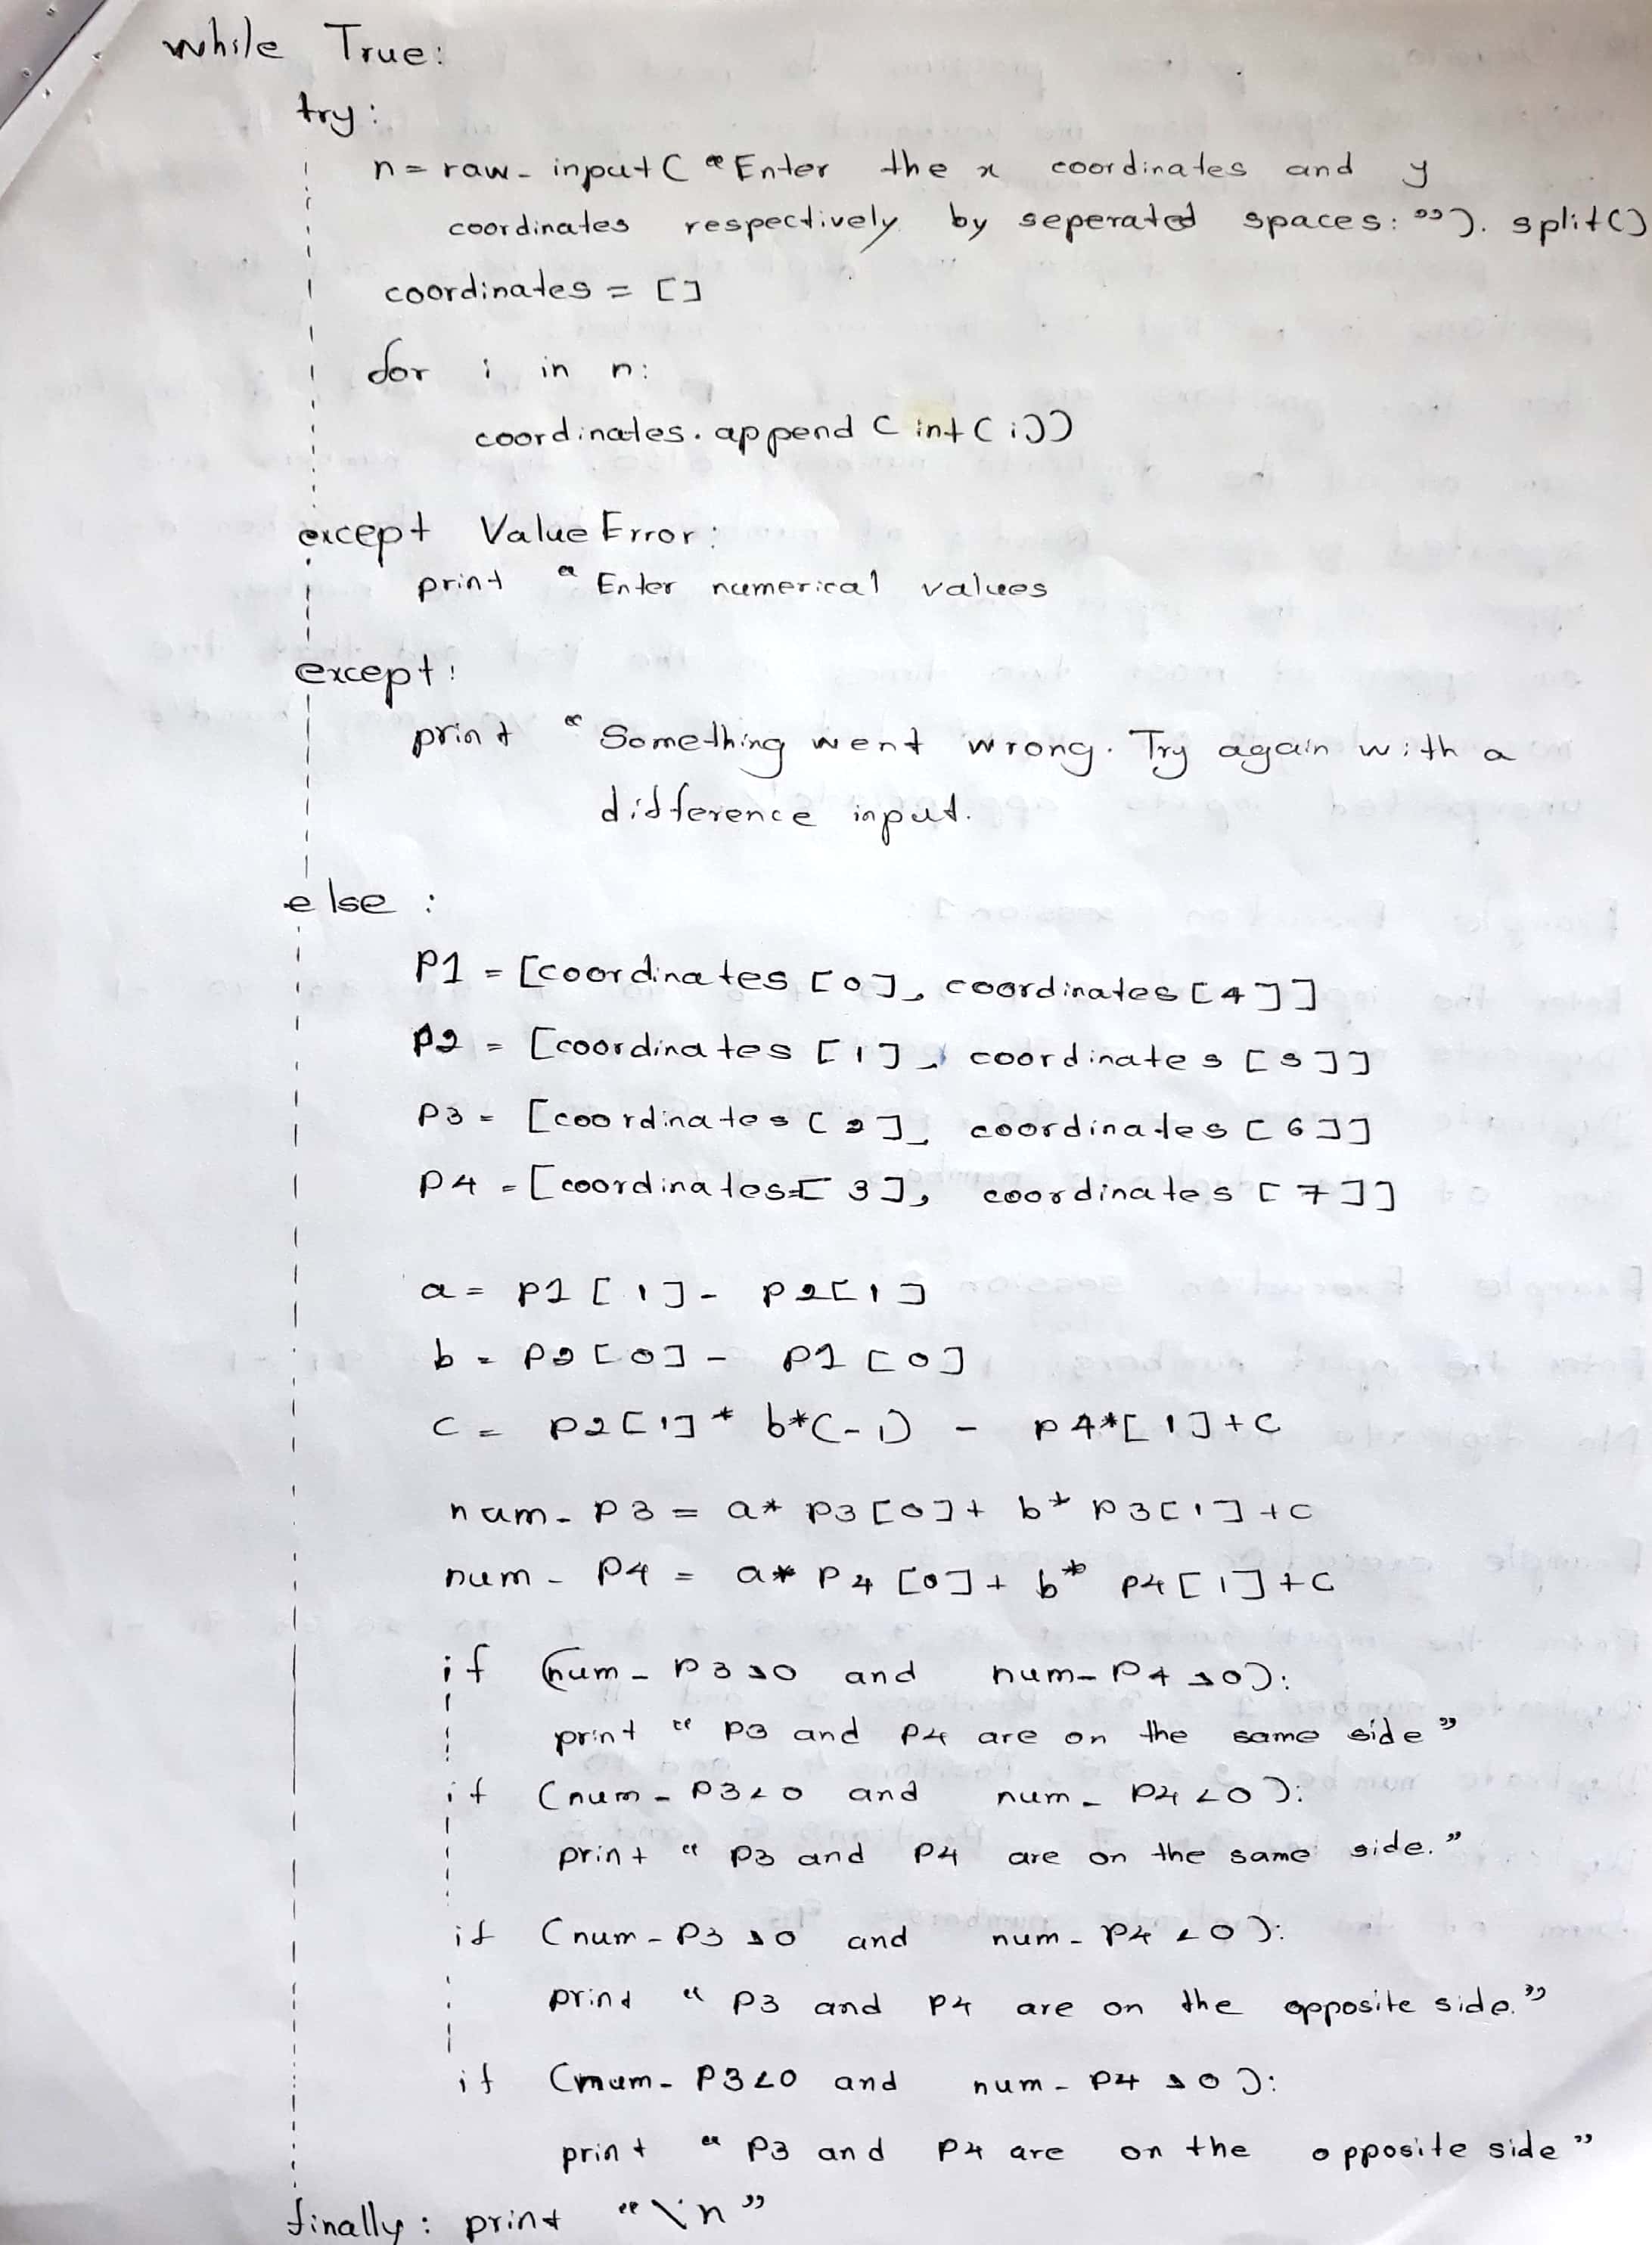 while True:
try:
n = raw_input ( "Enter the x coordinates and y
coordinates respectively by seperated spaces: ”). split()
coordinates = []
for i in n:
coordinates.append (int(i))
except Value Error:
print "Enter numerical values
except:
print "Something went wrong. Try again with a
difference input.
else :
P1 = [coordinates [0], coordinates [4]]
P2 = [coordinates [1], coordinates [5]]
P3 = [coordinates [2], coordinates [6]]
P4 = [coordinates[ 3], coordinates [7]]
a = p1 [1] - p2[1]
b = p2 [0] - p1 [0]
c = p2[1] * b*(-1) - p4*[1]+c
num_p3 = a* p3[0]+ b* p3[1] +c
num_p4 = a* p4 [0]+ b* p4[1]+c
if (num_p3>0 and num_p4>0):
print “ p3 and p4 are on the same side ”
if (num_p3<0 and num_p4<0):
print “ p3 and p4 are on the same side.”
if (num_p3>0 and num_p4<0):
print “ p3 and p4 are on the opposite side.”
if (num_p3<0 and num_p4>0):
print “ p3 and p4 are on the opposite side ”
finally: print “\n”